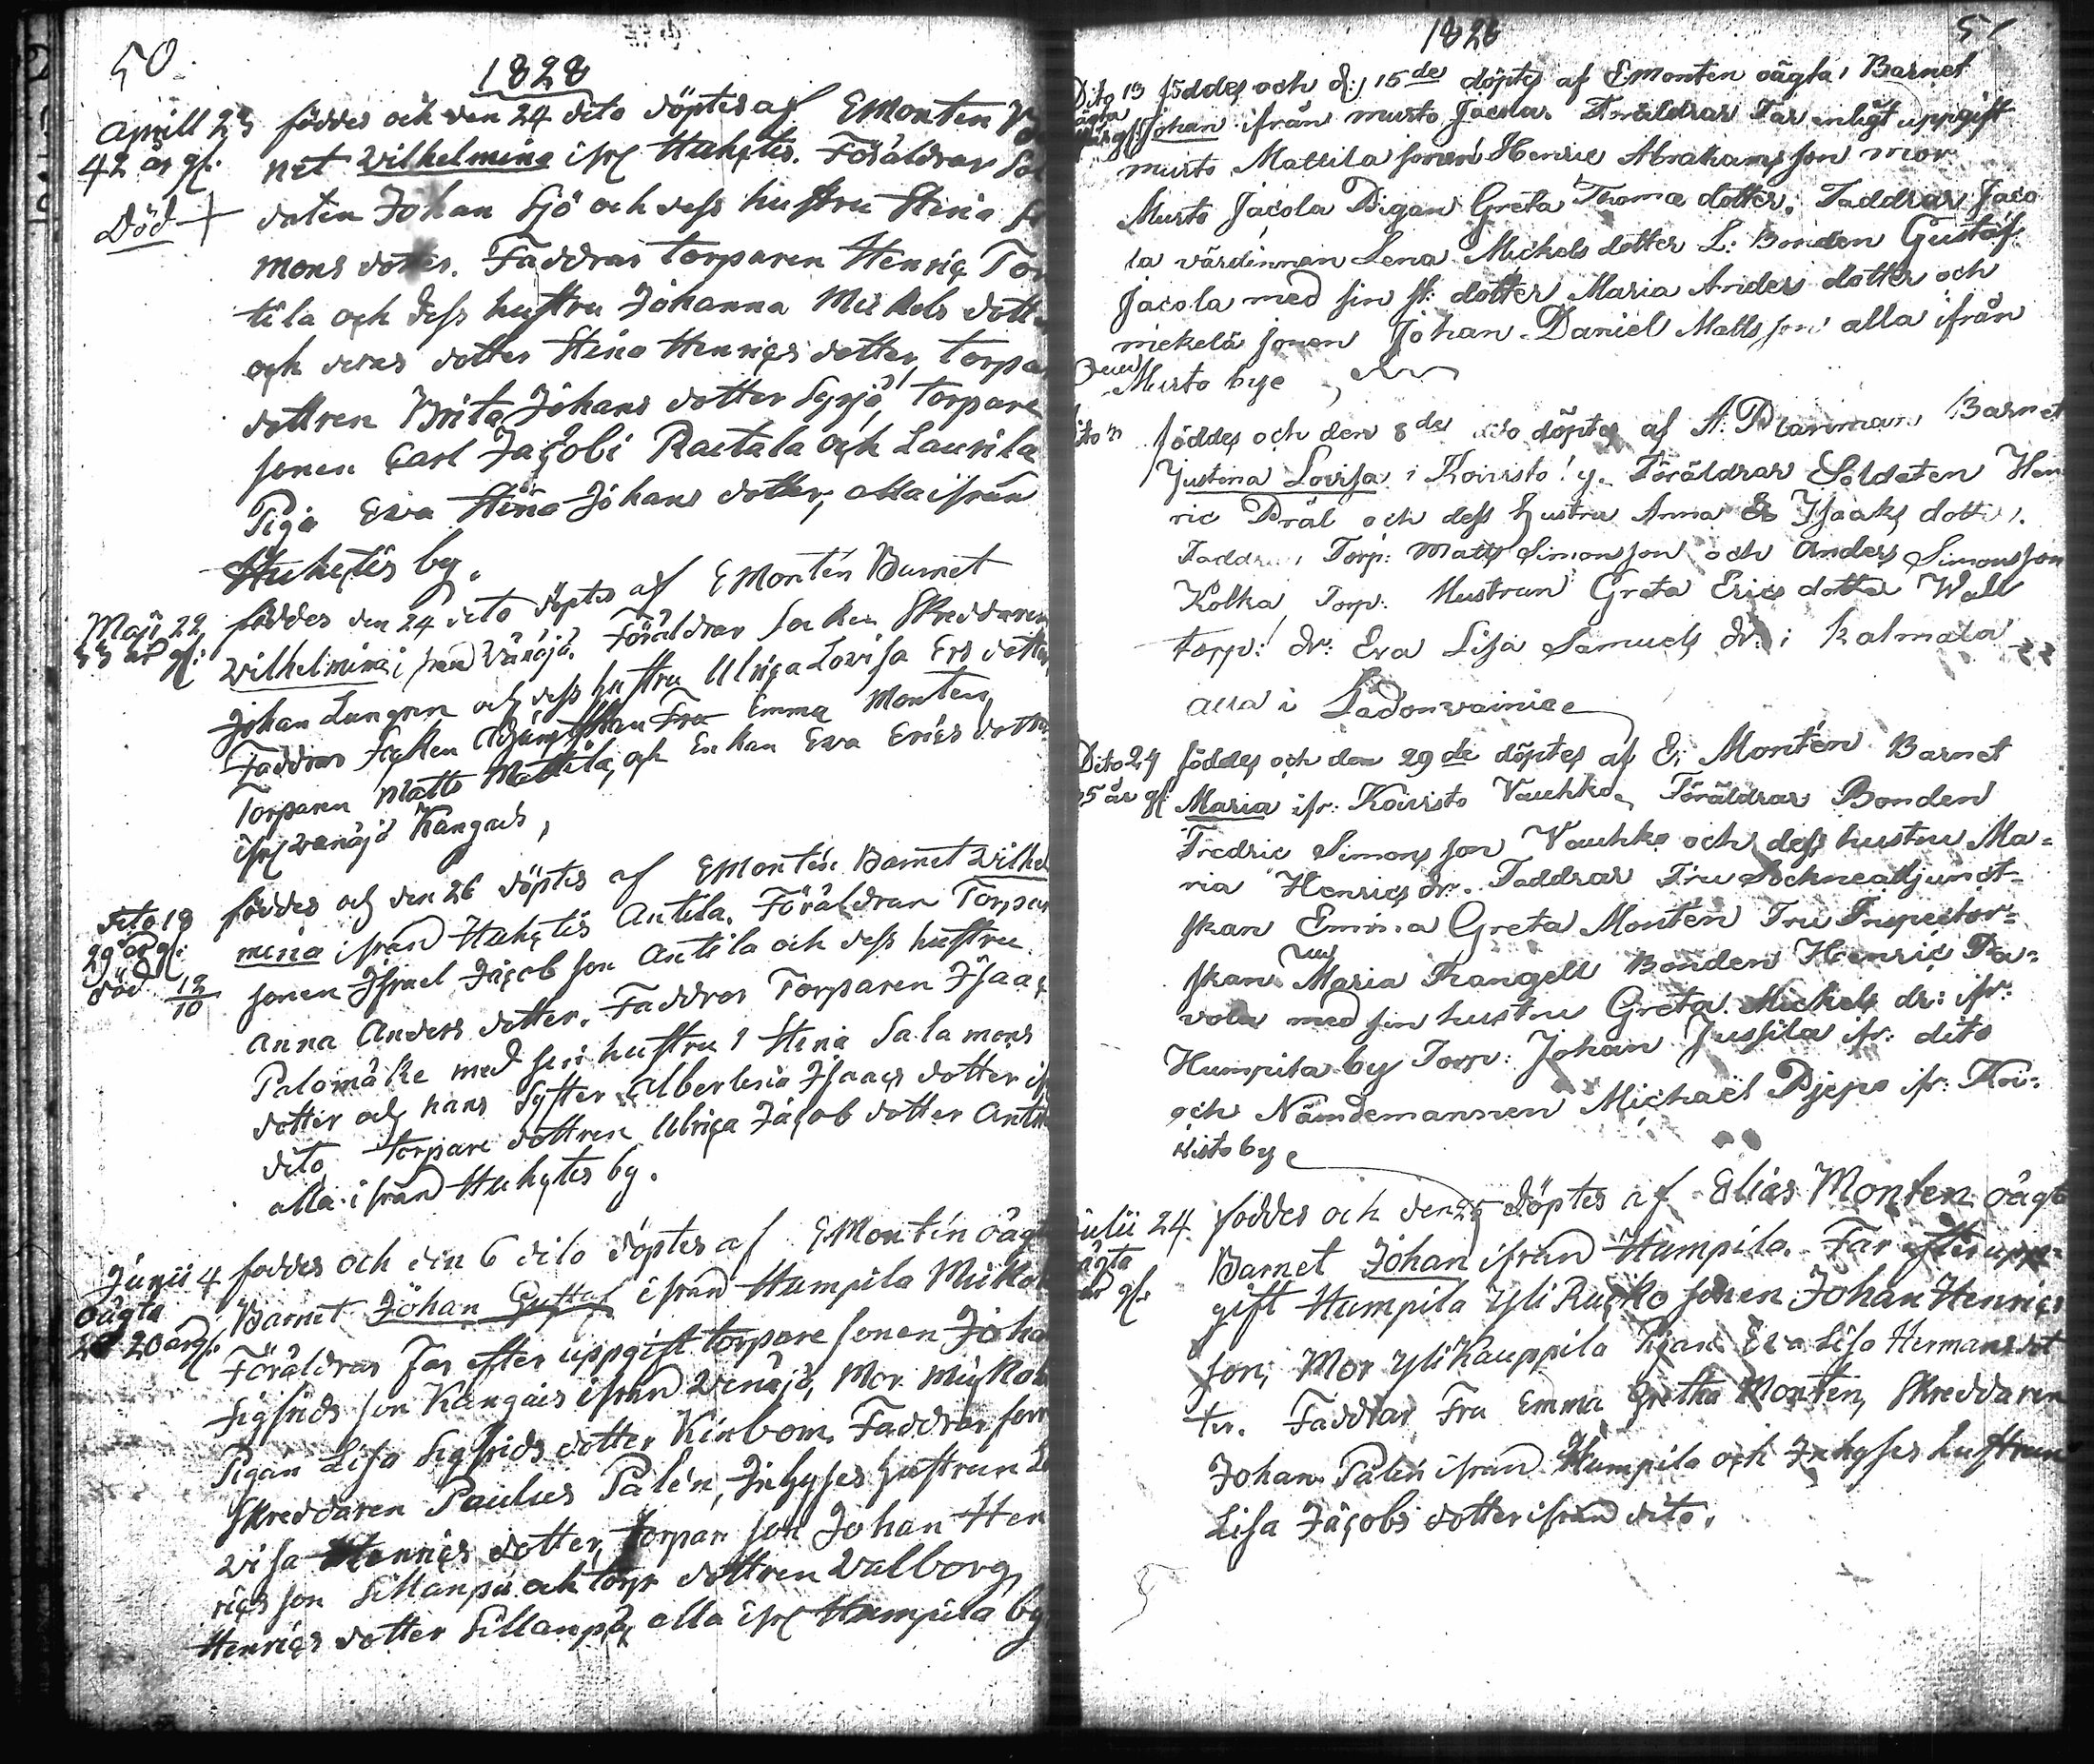 50
1828
Aprill 23 föddes och den 24 dito döptes af E Monten
42 år gl. net Wilhelmina ifrå Huhtis. Föräldrar Sol
Död + daten Johan Sjö och dess hustru Stina
mons dotter. Faddrar torparen Henric Tor
tila och dess hustru Johanna Mickels dott
och deras dotter Stina Henrics dotter, torpa
dottren Brita Johans dotter Syrjä, torpare
sonen Carl Jacobi Raetala och Laurila
Piga Eva Stina Johans dotter, alla ifrån
Huhtis by.
Maji 22 föddes den 24 dito döptes af E Montén Barnet
33 år gl: Wilhelmina ifrån Vänöjä. Föräldrar Socken Skreddaren
Johan Lungren och dess hustru Ulrica Lovisa Ers dotter
Faddrar Socken Adjungtskan Fru Emma Monten,
Torparen Matts Mattila, och Enkan Eva Erics dotter
ifrå wänöjä Kangais,
dito 18 föddes och den 26 döptes af E Montén Barnet Wilhel
29 år gl: mina ifrån Huhtis Antila. Föräldrar Torpar
död 12/10 sonen Israel Jacob son Antila och dess hustru
Anna Anders dotter. Faddrar Torparen Isaac
Palomäke med sin hustru Stina Salamons
dotter och hans Syster Albertina Isaacs dotter if
dito, torpare dottren Ulrica Jacob dotter Anti
alla ifrån Huhtis by.
Junii 4 foddes och den 6 dito döptes af E Montén oägt
oägta Barnet Johan Gustaf ifrån Humpila Muikol
20 år gl. Föräldrar Far efter uppgift torpare sonen Joha
Sigfrids son Kangais ifrån Wänöjä, Mor Muikol
Pigan Lisa Sigfrids dotter Kinbom. Faddrar
Skreddaren Paulus Palén, Inhyses hustrun
visa Henrics dotter, torpar son Johan Hen
rics son Sillanpä och torp dottren Walborg
Henrics dotter Sillanpä, alla ifrå Humpila by
1828
51
Dito 13 föddes och d: 15de döptes af E Monten oägta Barnet
Johan ifrån Murto Jacola. Föräldrar Far enligt uppgift
Murto Mattila sonen Henric Abrahamsson mor
Murto Jacola Pigan Greta Thoma dotter. Faddrar Jaco
la värdinnan Lena Mickels dotter L: Bonden Gustaf
Jacola med sin st: dotter Maria Anders dotter och
mickelä sonen Johan Daniel Matts son alla ifrån
Murto bye
föddes och den 8de dito döptes af A: Planman Barnet
Justina Lovisa i Koivisto by. Föräldrar Soldaten Hen
ric Präl och dess hustru Anna Isaaks dotter.
Faddrar Torp: Matts Simonsson och Anders Simonsson
Kolka Torp: Hustrun Greta Erics dotter Wall
torp: dr: Eva Lisa Samuels dr: i Kalmala
alla i
Dito 24 föddes och den 29de döptes af E: Montén Barnet
25 år gl: Maria ifr: Koivisto Vauhko. Föräldrar Bonden
Fredric Simonsson Vauhko och dess hustru Ma=
ria Henrics dr. Faddrar Fru Sockneadjunct=
skan Emma Greta Montén Fru Inspector=
skan Maria Rangell Bonden Henric Pa=
vola med sin hustru Greta Mickels dr: ifr:
Humpila by Torp: Johan Jussila ifr: dito
och Nämdemannen Michaël Pjepo ifr: Koi=
visto bye
Julii 24 foddes och den 25 döptes af Elias Monten oägt
oägta Barnet Johan ifrån Humpila. Far efter upp=
år gl. gift Humpila yli Rucko sonen Johan Henrics
son, Mor yli Kauppila Pigan Eva Lisa Hermans dot
ter. Faddrar Fru Emma Gretha Monten, Skreddaren
Johan Palén ifrån Humpila och Inhyses hustrun
Lisa Jacobs dotter ifrån dito.